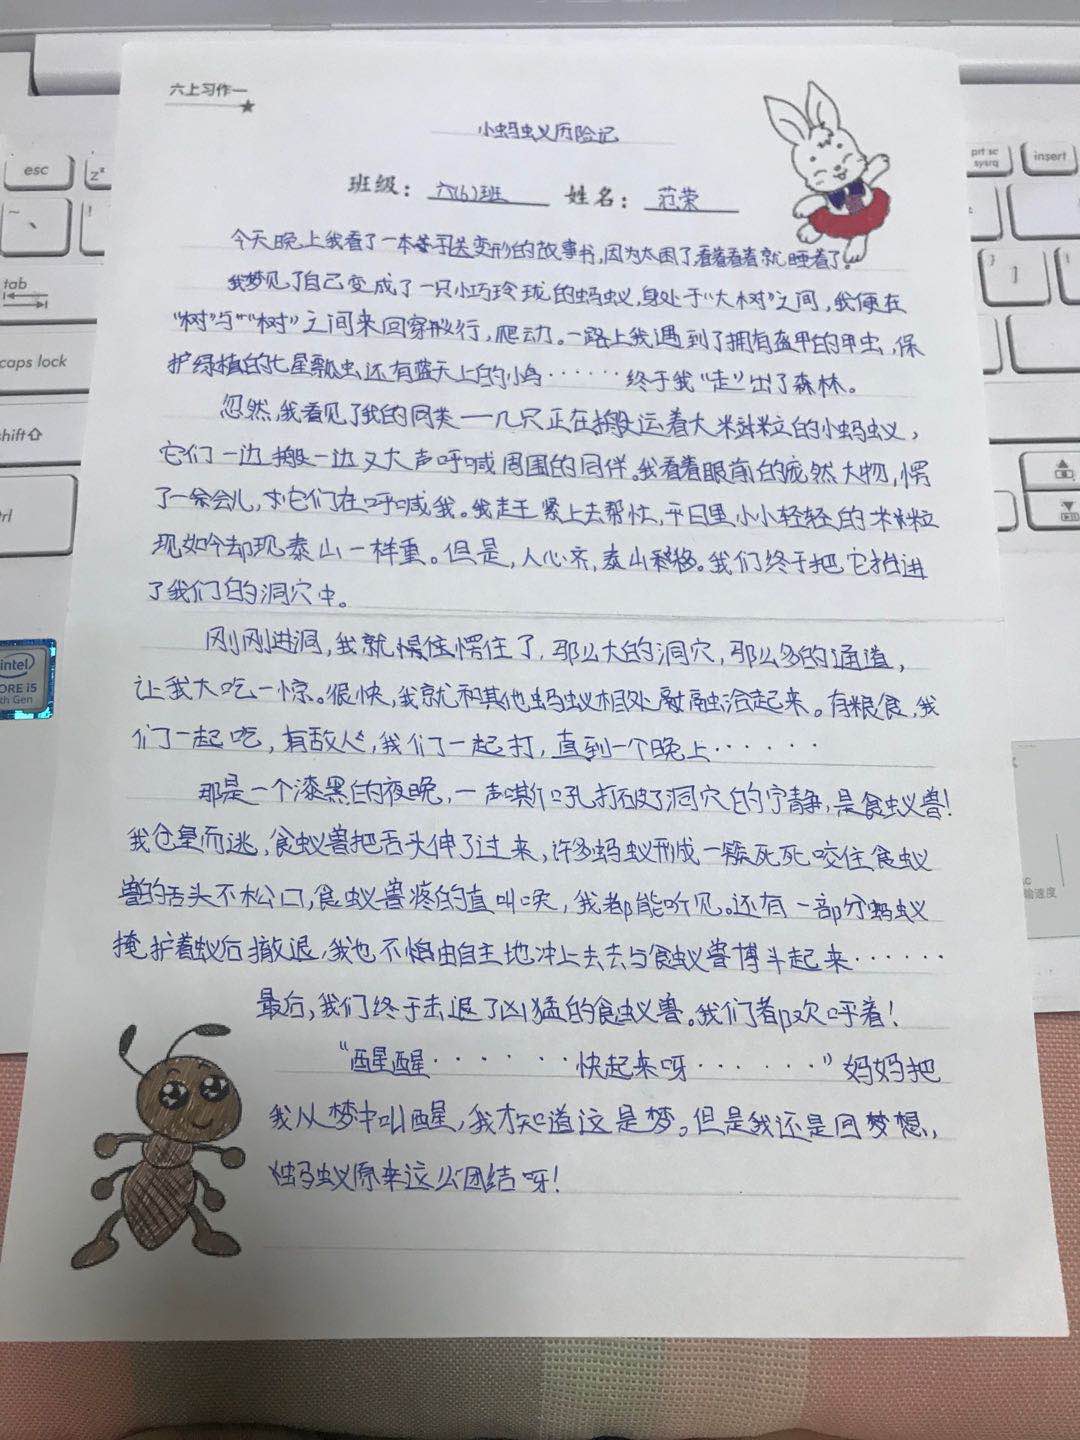 esc
prt sc
sysrq
insert
tab
caps lock
shift
intel
CORE i5
th Gen
六上习作一
小蚂蚁历险记
班级：六(6)班 姓名：范荣
今天晚上我看了一本关于变形的故事书,因为太困了,看着看着就睡着了。
我梦见了自己变成了一只小巧玲珑的蚂蚁,身处于“大树”之间,我便在
“树”与“树”之间来回穿行,爬动。一路上我遇到了拥有盔甲的甲虫,保
护绿植的七星瓢虫还有蓝天上的小鸟……终于我“走”出了森林。
忽然,我看见了我的同类一几只正在搬运着大米粒的小蚂蚁,
它们一边搬一边又大声呼喊周围的同伴。我看着眼前的庞然大物,愣
了一会儿,它们在呼喊我。我赶紧上去帮忙,平日里小小轻轻的米粒
现如今却现泰山一样重。但是,人心齐,泰山移。我们终于把它抬进
了我们的洞穴中。
刚刚进洞,我就愣住了,那么大的洞穴,那么多的通道,
让我大吃一惊。很快,我就和其他蚂蚁相处融洽起来。有粮食,我
们一起吃,有敌人,我们一起打,直到一个晚上……
那是一个漆黑的夜晚,一声嘶吼打破了洞穴的宁静,是食蚁兽!
我仓皇而逃,食蚁兽把舌头伸了过来,许多蚂蚁形成一簇死死咬住食蚁
兽的舌头不松口,食蚁兽疼的直叫唤,我都能听见。还有一部分蚂蚁
掩护着蚁后撤退,我也不由自主地冲上去去与食蚁兽博斗起来……
最后,我们终于击退了凶猛的食蚁兽。我们都欢呼着!
“醒醒……快起来呀……”妈妈把
我从梦中叫醒,我才知道这是梦。但是我还是回梦想,
蚂蚁原来这么团结呀!